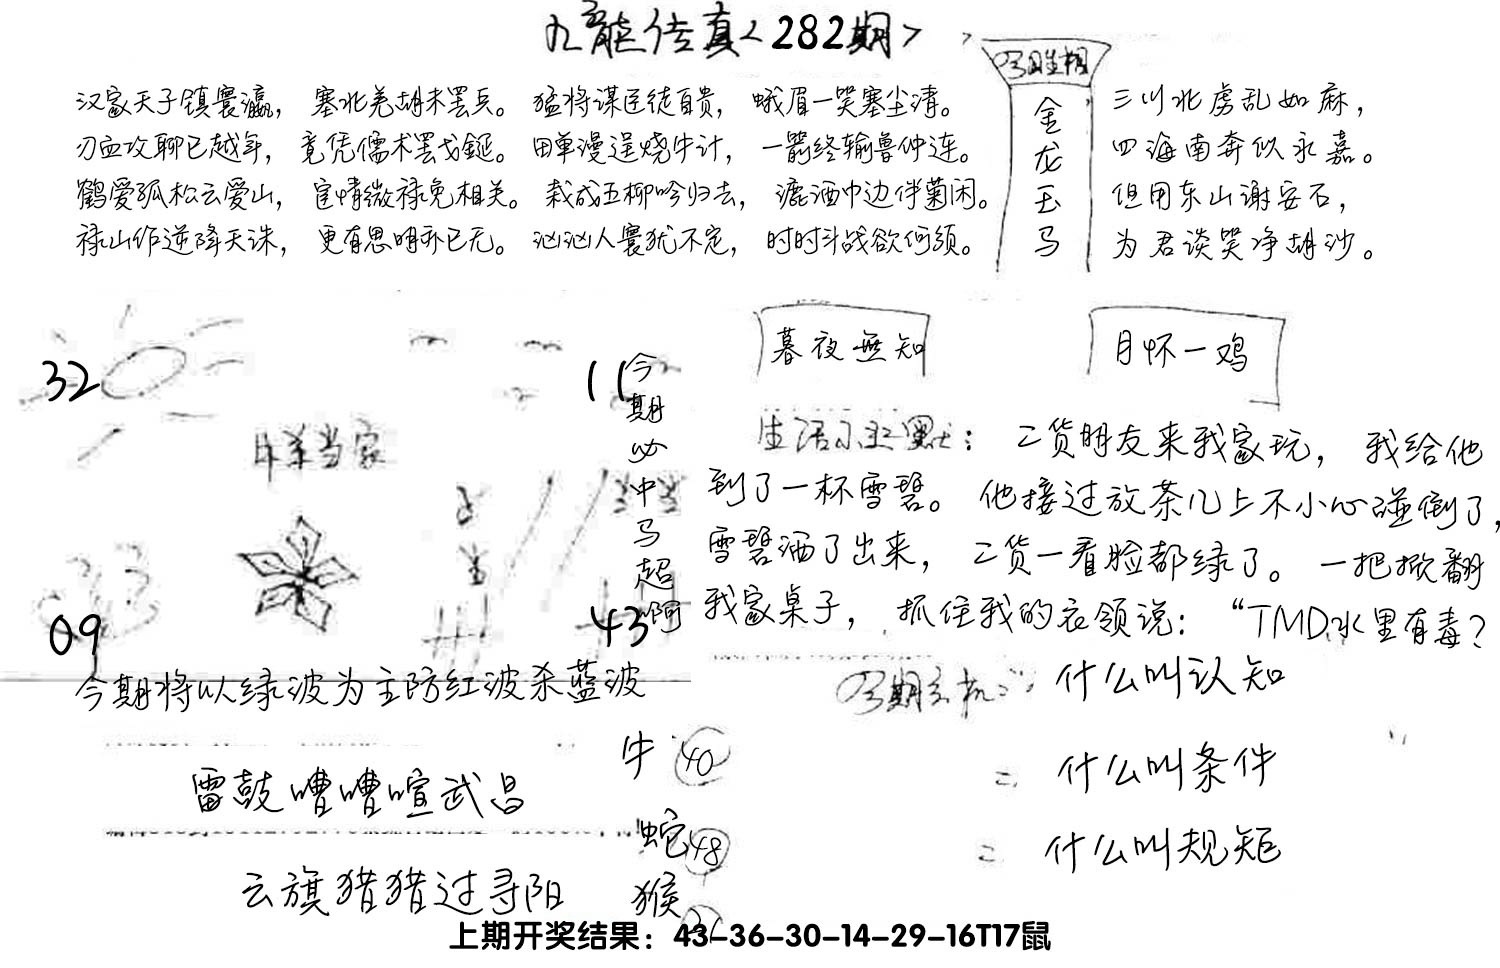 九龙传真<282期>
今日生相
金龙玉马
汉家天子镇寰瀛，塞北羌胡未罢兵。猛将谋臣徒自贵，蛾眉一笑塞尘清。
刃血攻聊已越年，竟凭儒术罢戈鋋。田单漫逞烧牛计，一箭终输鲁仲连。
鹤爱孤松云爱山，宦情微禄免相关。栽成五柳吟归去，漉酒巾边伴菊闲。
禄山作逆降天诛，更有思明亦已无。汹汹人寰犹不定，时时斗战欲何须。
三川北虏乱如麻，
四海南奔似永嘉。
但用东山谢安石，
为君谈笑净胡沙。
32
11
今期必中马超啊
当家
09
43
今期将以绿波为主防红波杀蓝波
暮夜無知
月怀一鸡
生活小幽默：二货朋友来我家玩，我给他
到了一杯雪碧。他接过放茶几上不小心碰倒了，
雪碧洒了出来，二货一看脸都绿了。一把掀翻
我家桌子，抓住我的衣领说：“TMD水里有毒？
今期玄机：什么叫认知
什么叫条件
什么叫规矩
雷鼓嘈嘈喧武昌
云旗猎猎过寻阳
牛 40
蛇 48
猴
上期开奖结果：43-36-30-14-29-16T17鼠